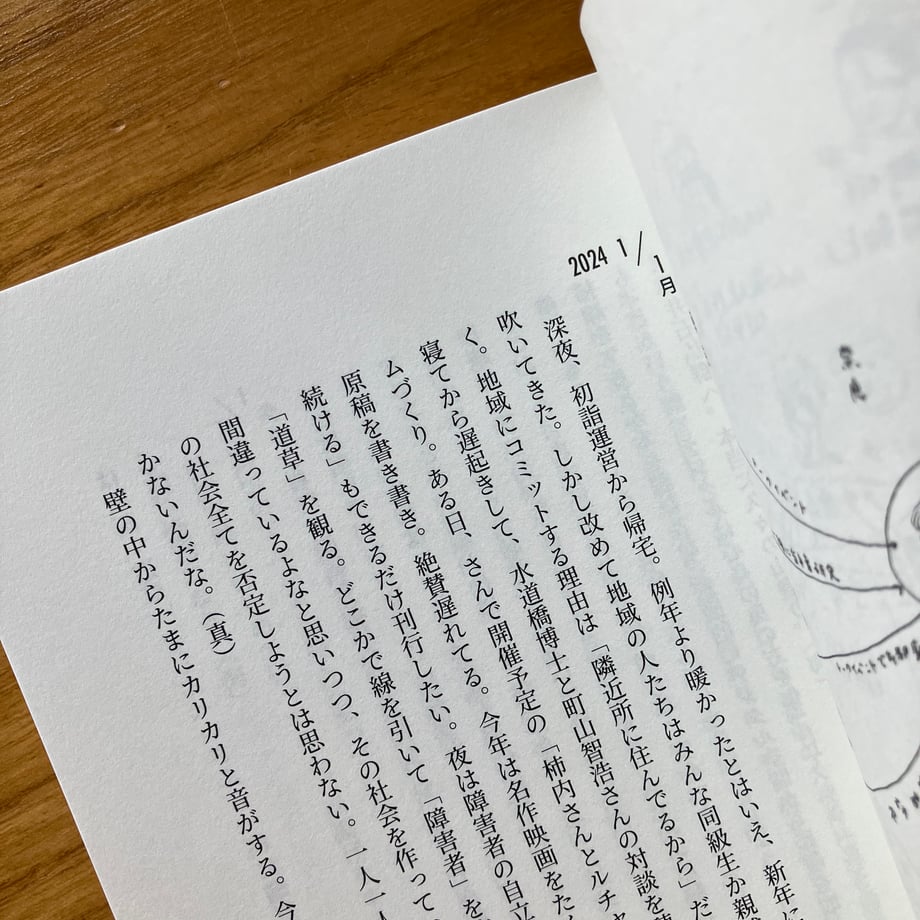 2024 1/1 月
深夜、初詣運営から帰宅。例年より暖かったとはいえ、新年に
吹いてきた。しかし改めて地域の人たちはみんな同級生か親
く。地域にコミットする理由は「隣近所に住んでるから」だ
寝てから遅起きして、水道橋博士と町山智浩さんの対談を
ムづくり。ある日、さんで開催予定の「柿内さんとルチャ
原稿を書き書き。絶賛遅れてる。今年は名作映画をた
続ける」もできるだけ刊行したい。夜は障害者の自立
「道草」を観る。どこかで線を引いて「障害者」を
間違っているよなと思いつつ、その社会を作って
の社会全てを否定しようとは思わない。一人一
かないんだな。（真）
壁の中からたまにカリカリと音がする。今
トークイベント